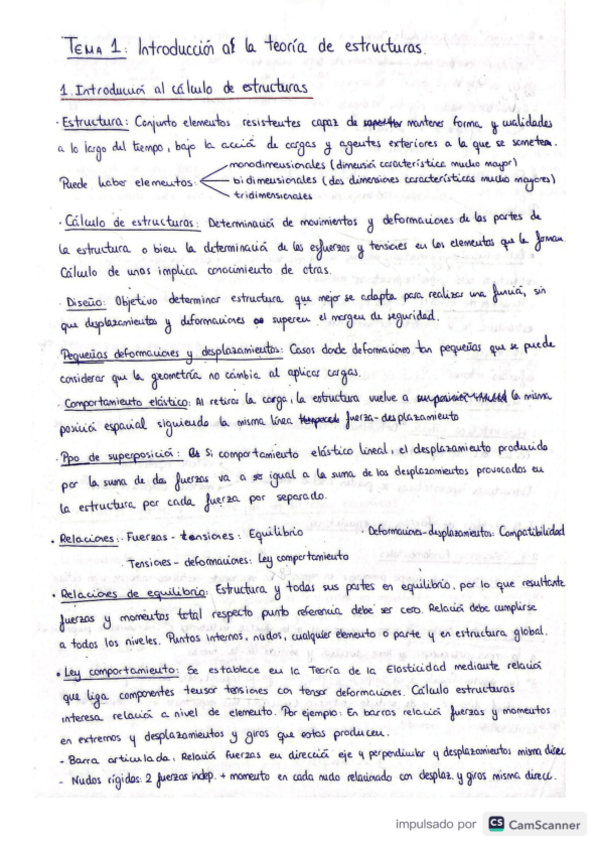 TEMA 1: Introducción a la teoría de estructuras.
1. Introducción al cálculo de estructuras
· Estructura: Conjunto elementos resistentes capaz de mantener forma y cualidades
a lo largo del tiempo, bajo la acción de cargas y agentes exteriores a la que se someten.
monodimensionales (dimensión característica mucho mayor)
Puede haber elementos: bidimensionales (dos dimensiones características mucho mayores)
tridimensionales
· Cálculo de estructuras: Determinación de movimientos y deformaciones de las partes de
la estructura o bien la determinación de los esfuerzos y tensiones en los elementos que la forman.
Cálculo de unos implica conocimiento de otras.
· Diseño: Objetivo determinar estructura que mejor se adapta para realizar una función, sin
que desplazamientos y deformaciones superen el margen de seguridad.
· Pequeñas deformaciones y desplazamientos: Casos donde deformaciones tan pequeñas que se puede
considerar que la geometría no cambia al aplicar cargas.
· Comportamiento elástico: Al retirar la carga, la estructura vuelve a la misma
posición espacial siguiendo la misma línea fuerza-desplazamiento
· Ppo de superposición: Si comportamiento elástico lineal, el desplazamiento producido
por la suma de dos fuerzas va a ser igual a la suma de los desplazamientos provocados en
la estructura por cada fuerza por separado.
· Relaciones: · Fuerzas - tensiones: Equilibrio · Deformaciones-desplazamientos: Compatibilidad
· Tensiones - deformaciones: Ley comportamiento
· Relaciones de equilibrio: Estructura y todas sus partes en equilibrio, por lo que resultante
fuerzas y momentos total respecto punto referencia debe ser cero. Relación debe cumplirse
a todos los niveles. Puntos internos, nudos, cualquier elemento o parte y en estructura global.
· Ley comportamiento: Se establece en la Teoría de la Elasticidad mediante relación
que liga componentes tensor tensiones con tensor deformaciones. Cálculo estructuras
interesa relación a nivel de elemento. Por ejemplo: En barras relación fuerzas y momentos
en extremos y desplazamientos y giros que estos producen.
- Barra articulada: Relación fuerzas en dirección eje y perpendicular y desplazamientos misma direc
- Nudos rígidos: 2 fuerzas indep. + momento en cada nudo relacionado con desplaz. y giros misma direcc.
impulsado por CS CamScanner